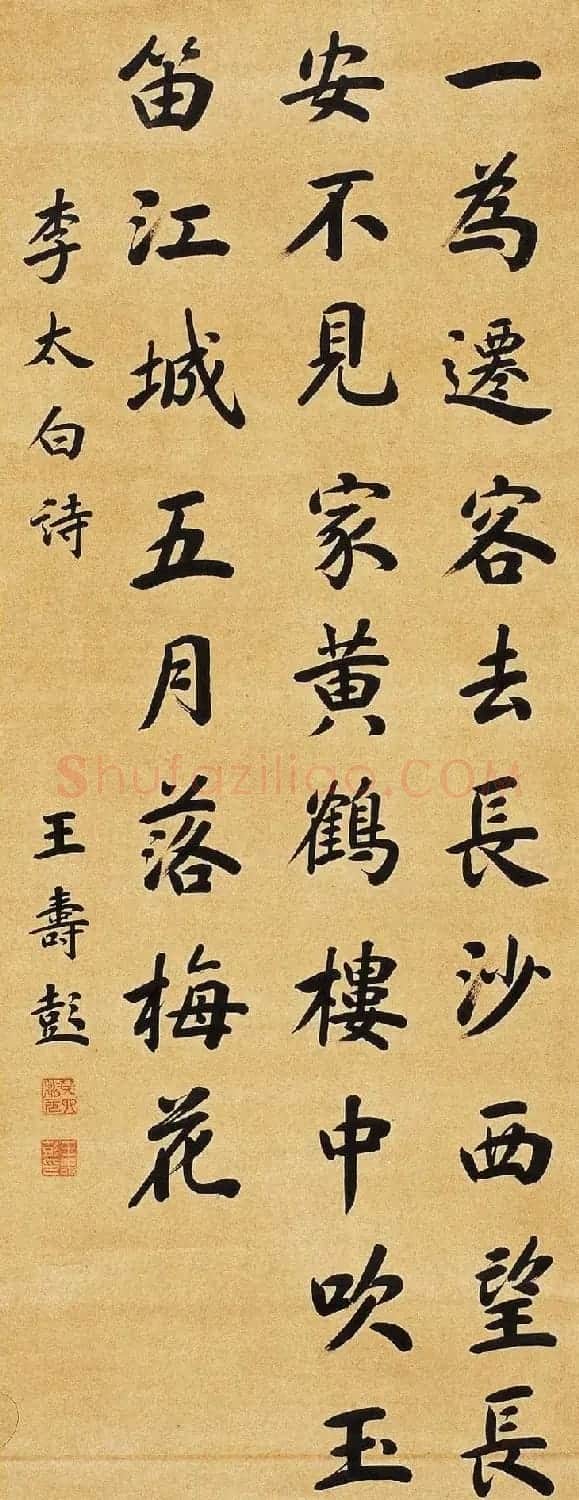 一為遷客去長沙西望長
安不見家黃鶴樓中吹玉
笛江城五月落梅花
李太白詩
王壽彭
Shufaziliao.COM